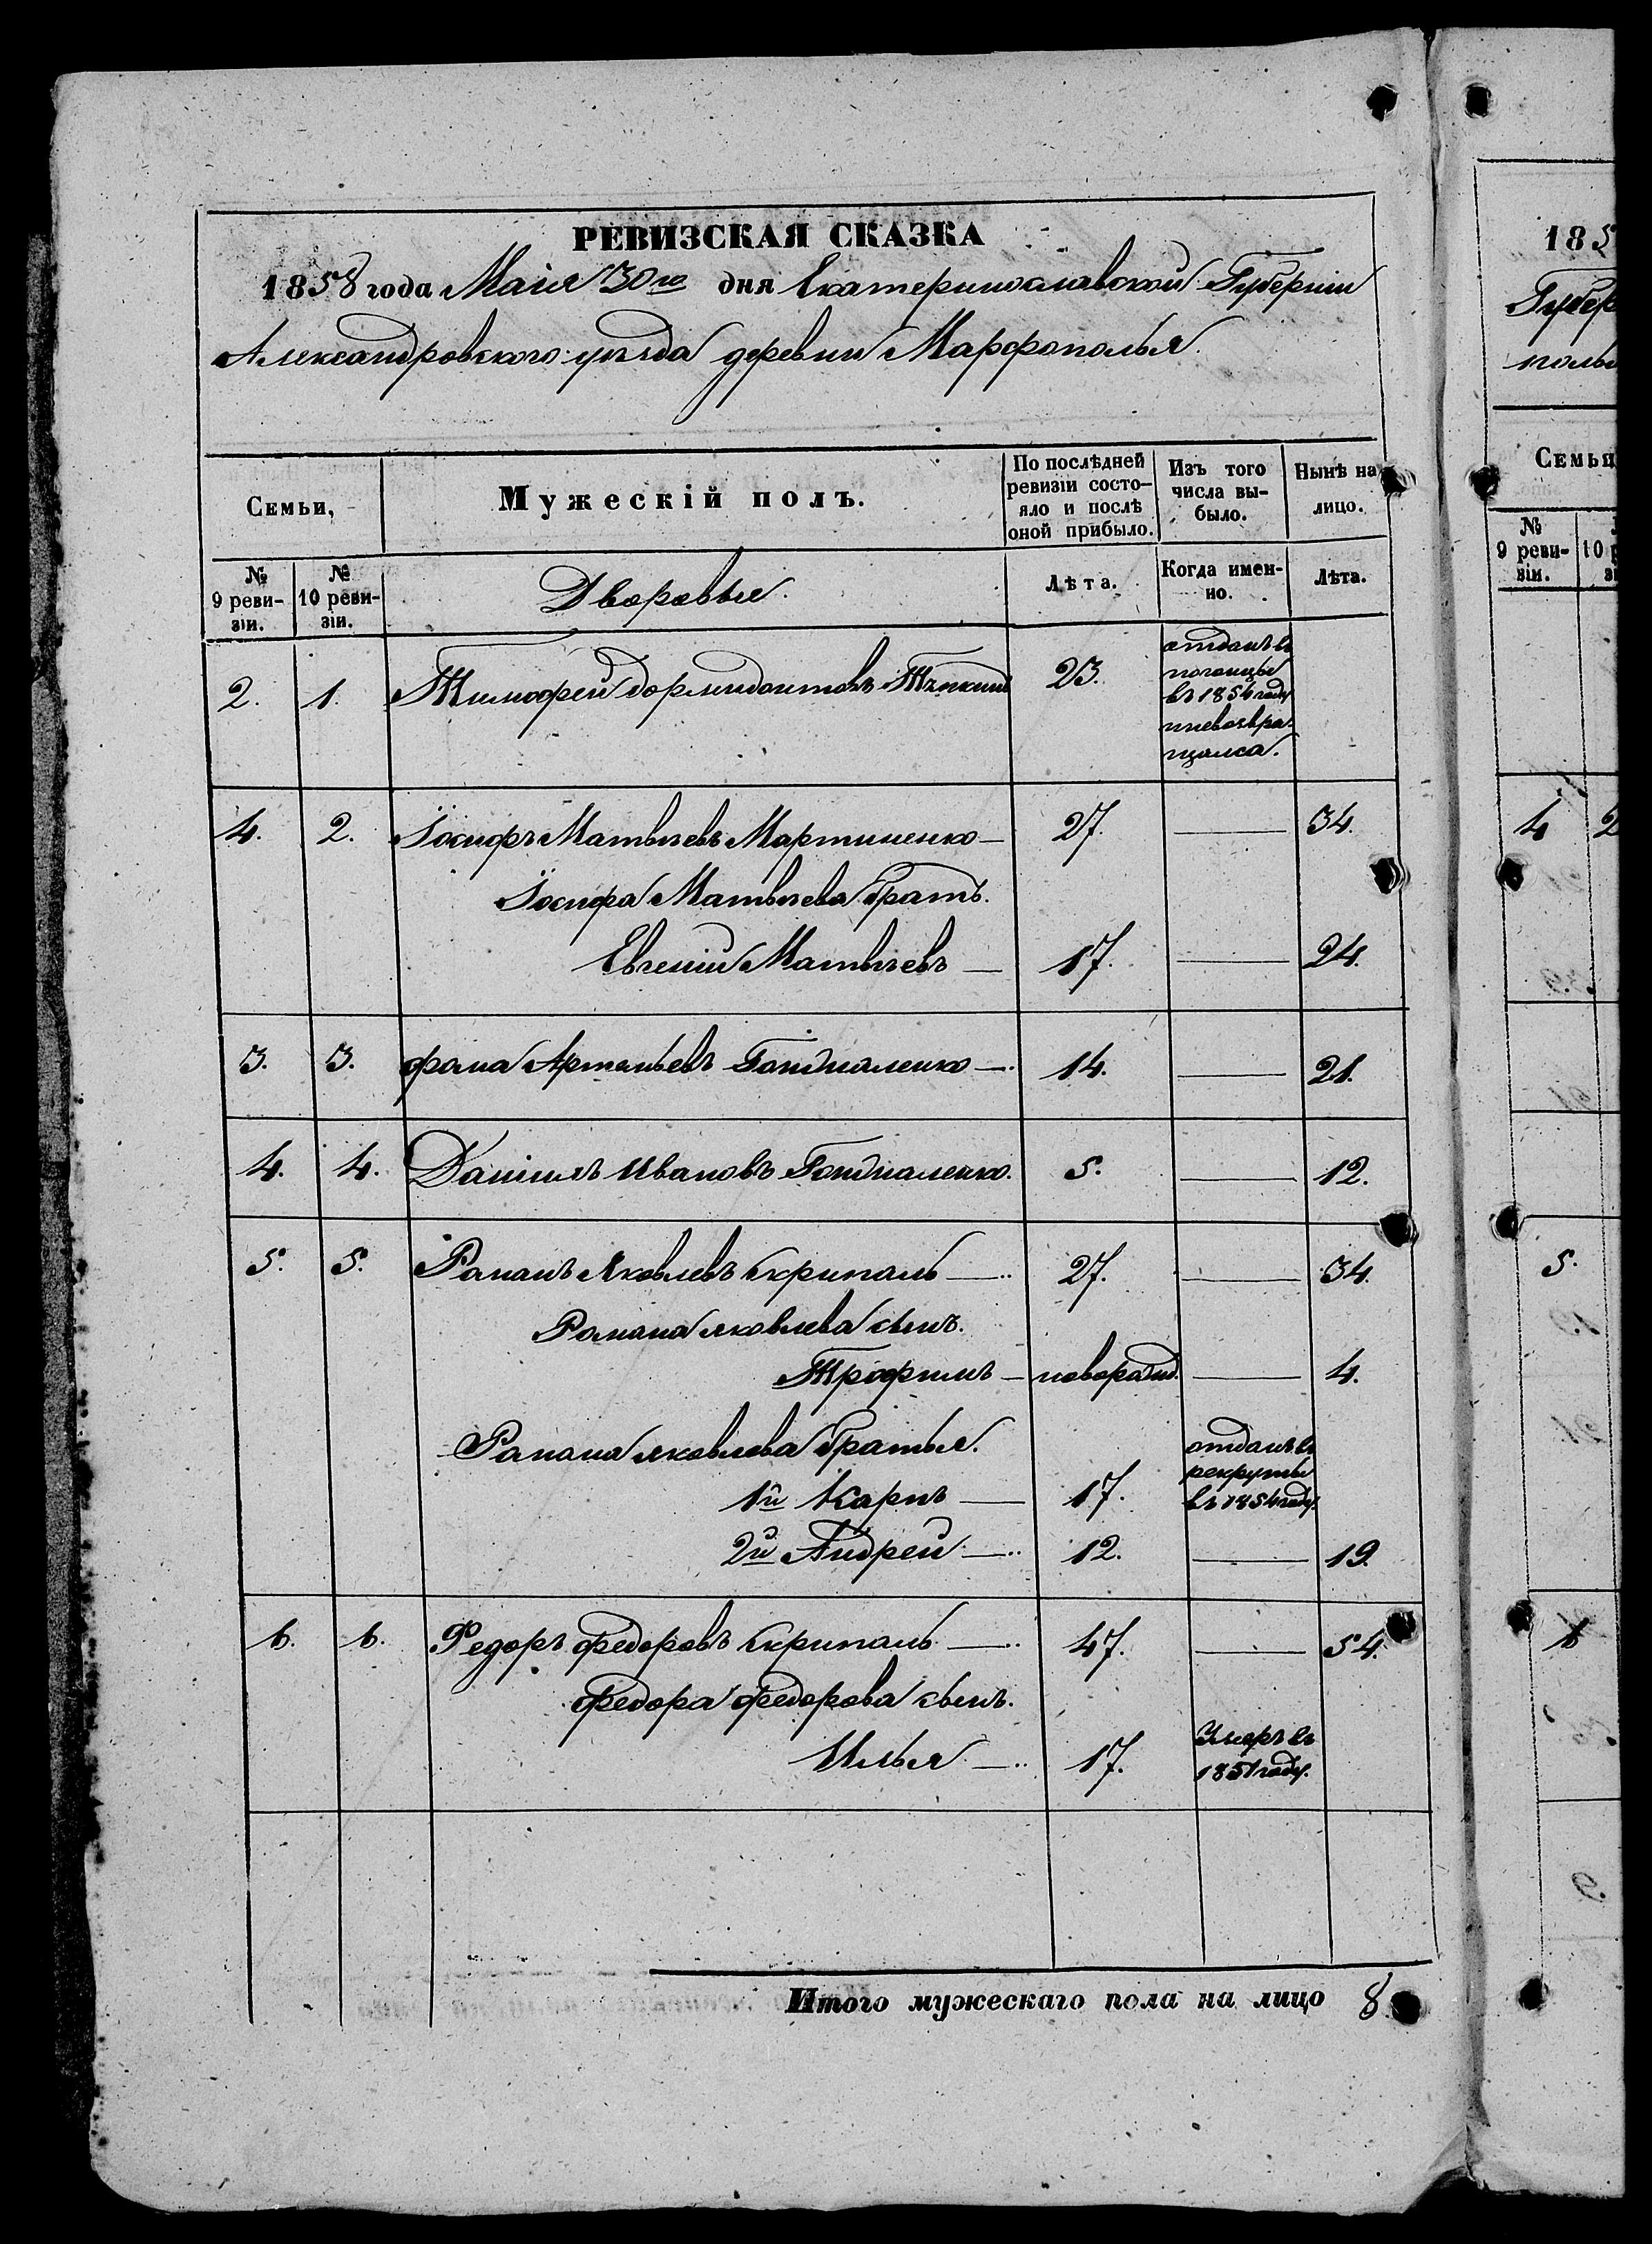 РЕВИЗСКАЯ СКАЗКА
1858 года Маія 30го дня Екатеринославской Губерніи
Александровского уѣзда деревни Марфополья.
Семьи,
Мужескій полъ.
По послѣдней ревизіи состо-
яло и послѣ оной прибыло.
Изъ того числа вы-
было.
Нынѣ на лицо.
№ 9 реви-
зіи.
№ 10 реви-
зіи.
Дворовые.
Лѣта.
Когда имен-
но.
Лѣта.
2. 1. Тимофей Дормидонтовъ 23.
отданъ въ
погонцы
въ 1854 году
и невозвра-
щался.
4. 2. Іосифъ Матвѣевъ Мартиненко — 27. — 34.
Іосифа Матвѣева братъ.
Евгеній Матвѣевъ — 17. — 24.
3. 3. фома Артемьевъ — 14. — 21.
4. 4. Даніилъ Ивановъ 5. — 12.
5. 5. Романъ Яковлевъ Скрипаль — 27. — 34.
Романа яковлева сынъ.
Трофимъ — новорожд. — 4.
Романа яковлева братья.
1й Карпъ — 17.
отданъ въ
рекруты
въ 1854 году.
2й Андрей — 12. — 19.
6. 6. Федоръ федоровъ Скрипаль — 47. — 54.
федора федорова сынъ.
Илья — 17.
Умеръ въ
1851 году.
Итого мужескаго пола на лицо 8
185
Губер
поль
Семьи
№ 9 реви-
зіи.
10
4 2
5.
6